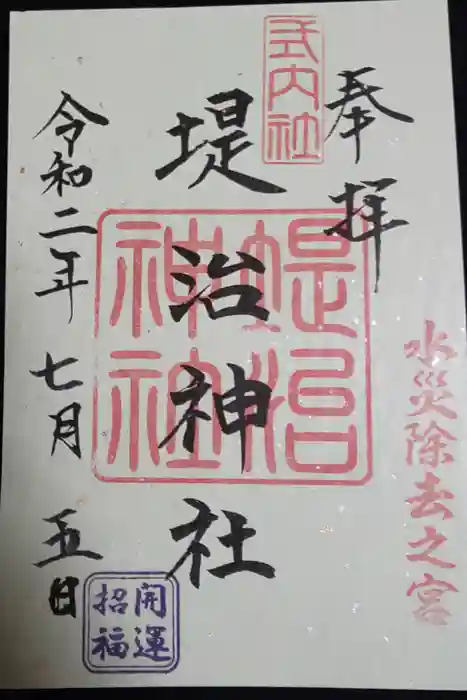 奉拝
式内社
水災除去之宮
堤治神社
堤治神社
令和二年七月五日
開運
招福